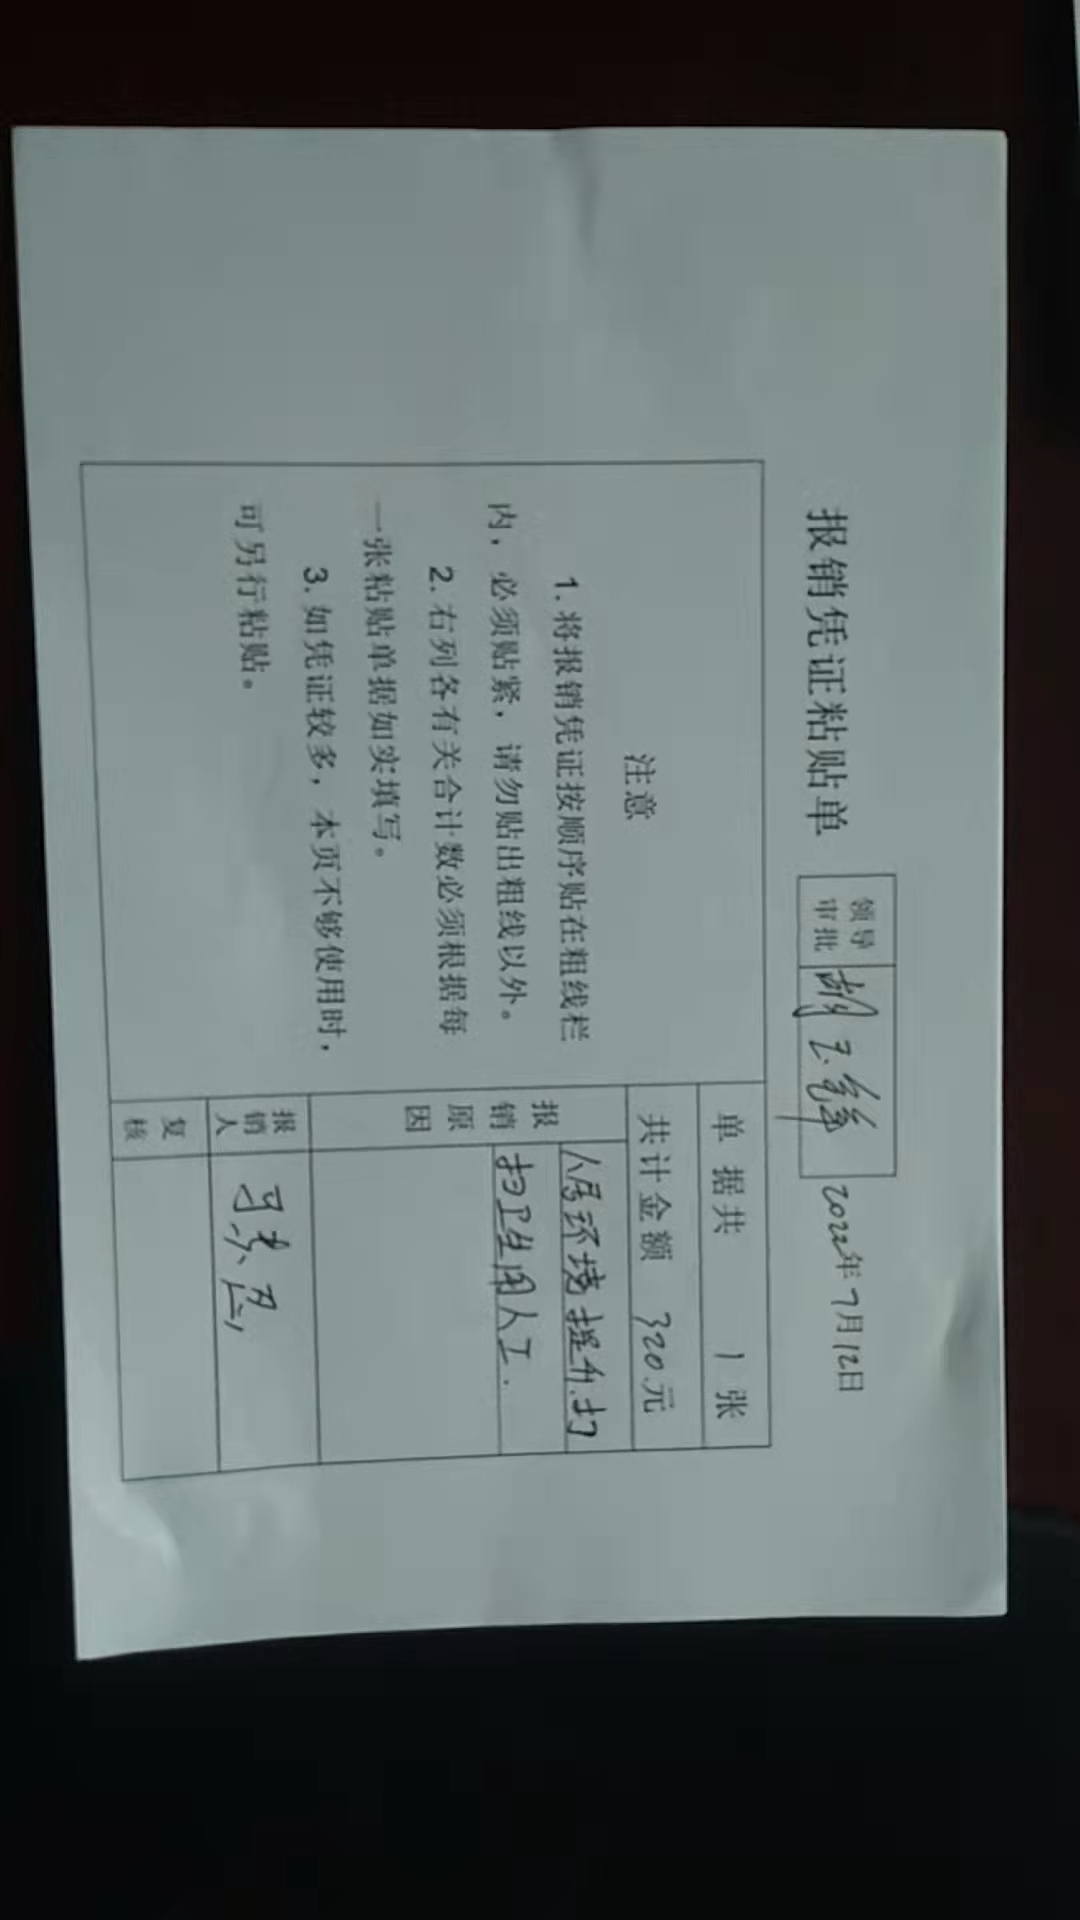 报销凭证粘贴单
领导
审批
2022年7月12日
注意
1. 将报销凭证按顺序贴在粗线栏
内，必须贴紧，请勿贴出粗线以外。
2. 右列各有关合计数必须根据每
一张粘贴单据如实填写。
3. 如凭证较多，本页不够使用时，
可另行粘贴。
单据共 1 张
共计金额 320元
报销原因
人居环境提升.打
扫卫生用人工.
报销人
复核